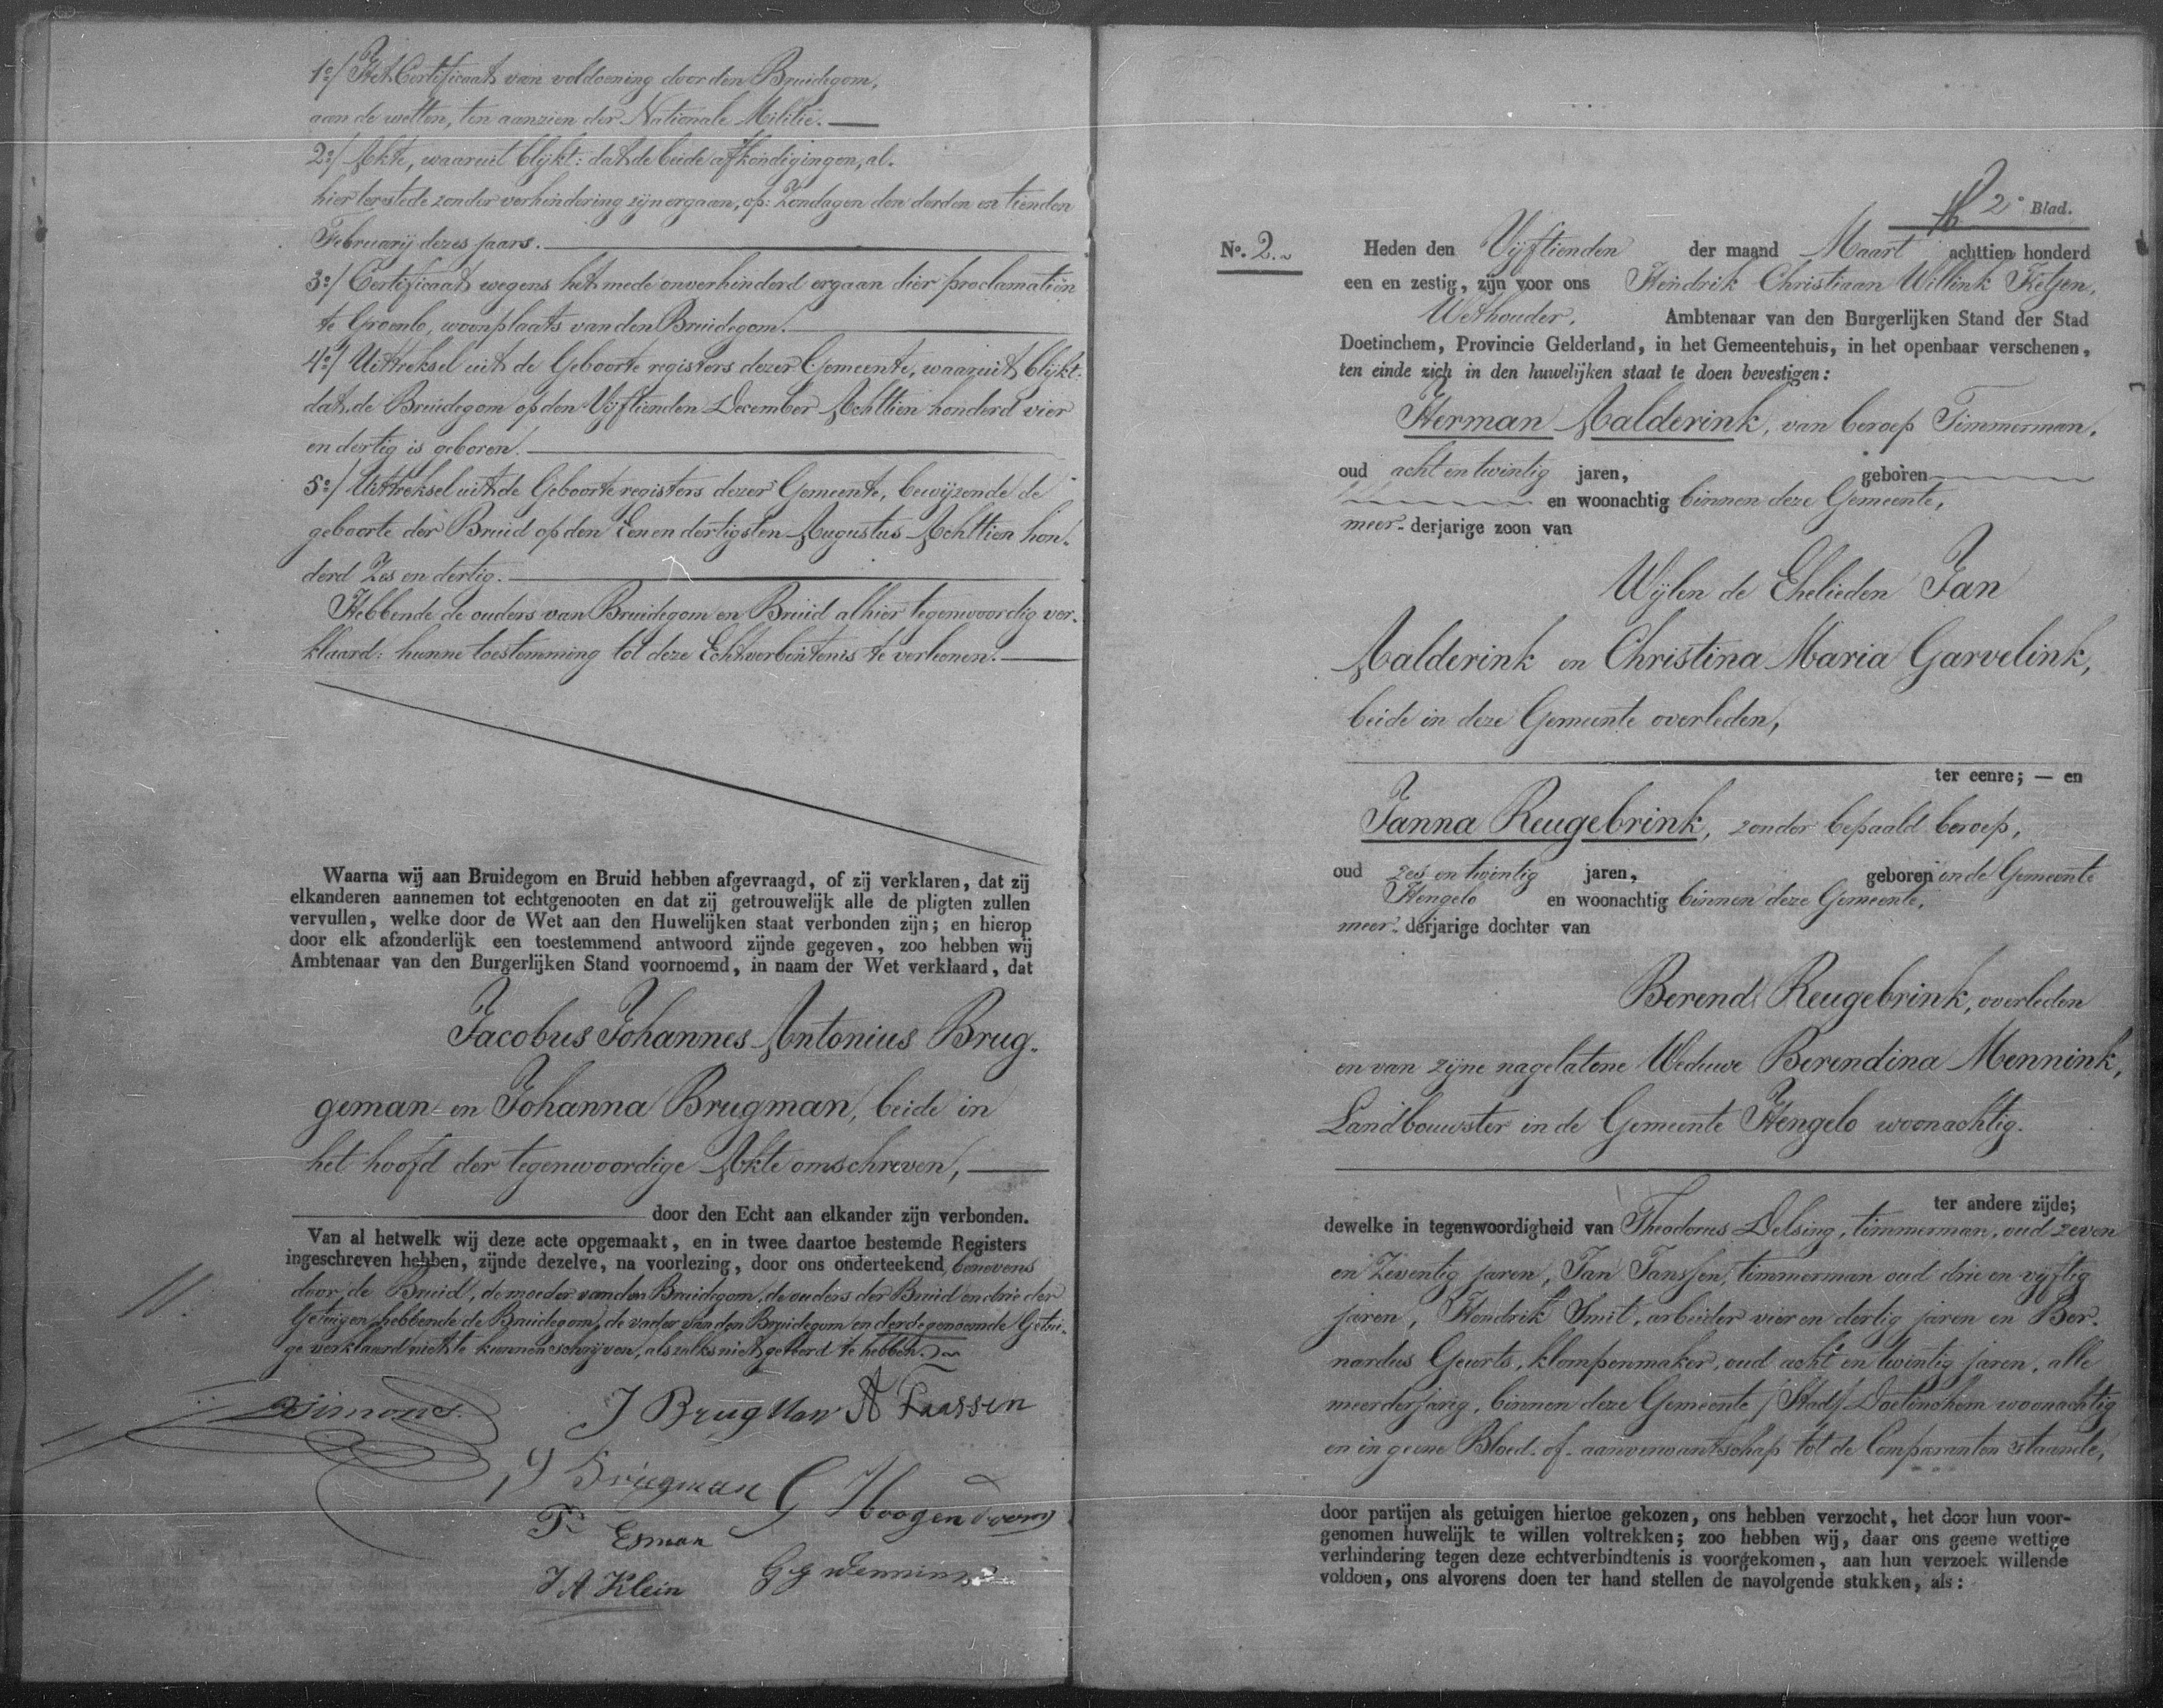 1o/ Het Certificaat van voldoening door den Bruidegom,
aan de wetten, ten aanzien der Nationale Militie. —
2o/ Akte, waaruit blijkt: dat de beide afkondigingen, al-
hier ter stede zonder verhindering zijn ergaan, op: Zondagen den derden en tienden
February dezes jaars. —
3o/ Certificaat wegens het mede onverhinderd ergaan dier proclamatien
te Groenlo, woonplaats van den Bruidegom. —
4o/ Uittreksel uit de Geboorte registers dezer Gemeente, waaruit blijkt:
dat de Bruidegom op den Vijftienden December Achttien honderd vier
en dertig is geboren. —
5o/ Uittreksel uit de Geboorte registers dezer Gemeente, bewijzende de
geboorte der Bruid op den Een en dertigsten Augustus Achttien hon-
derd Zes en dertig. —
Hebbende de ouders van Bruidegom en Bruid alhier tegenwoordig ver-
klaard: hunne toestemming tot deze Echtverbintenis te verleenen. —
Waarna wij aan Bruidegom en Bruid hebben afgevraagd, of zij verklaren, dat zij
elkanderen aannemen tot echtgenooten en dat zij getrouwelijk alle de pligten zullen
vervullen, welke door de Wet aan den Huwelijken staat verbonden zijn; en hierop
door elk afzonderlijk een toestemmend antwoord zijnde gegeven, zoo hebben wij
Ambtenaar van den Burgerlijken Stand voornoemd, in naam der Wet verklaard, dat
Jacobus Johannes Antonius Brug-
geman en Johanna Brugman, beide in
het hoofd der tegenwoordige Akte omschreven, —
door den Echt aan elkander zijn verbonden.
Van al hetwelk wij deze acte opgemaakt, en in twee daartoe bestemde Registers
ingeschreven hebben, zijnde dezelve, na voorlezing, door ons onderteekend, benevens
door de Bruid, de moeder van den Bruidegom, de ouders der Bruid en drie der
Getuigen, hebbende de Bruidegom, de vader van den Bruidegom en derde genoemde Getui-
ge verklaard niet te kunnen schrijven, als zulks niet geleerd te hebben.
Simons. J Brugman A Faassen
Brugman G Hoogendoorn
Esman
J A Klein
2e Blad.
No. 2. Heden den Vijftienden der maand Maart achttien honderd
een en zestig, zijn voor ons Hendrik Christiaan Willink Ketjen,
Wethouder, Ambtenaar van den Burgerlijken Stand der Stad
Doetinchem, Provincie Gelderland, in het Gemeentehuis, in het openbaar verschenen,
ten einde zich in den huwelijken staat te doen bevestigen:
Herman Aalderink, van beroep Timmerman,
oud acht en twintig jaren, geboren
en woonachtig binnen deze Gemeente,
meer- derjarige zoon van
Wijlen de Ehelieden Jan
Aalderink en Christina Maria Garvelink,
beide in deze Gemeente overleden,
ter eenre; — en
Janna Reugebrink, zonder bepaald beroep,
oud zes en twintig jaren, geboren in de Gemeente
Hengelo en woonachtig binnen deze Gemeente,
meer- derjarige dochter van
Berend Reugebrink, overleden
en van zijne nagelatene Weduwe Berendina Mennink,
Landbouwster in de Gemeente Hengelo woonachtig.
ter andere zijde;
dewelke in tegenwoordigheid van Theodorus Delsing, timmerman, oud zeven
en Zeventig jaren, Jan Janssen, timmerman oud drie en vijftig
jaren, Hendrik Smit, arbeider vier en dertig jaren en Ber-
nardus Geurts, klompenmaker, oud acht en twintig jaren, alle
meerderjarig, binnen deze Gemeente /Stad/ Doetinchem woonachtig
en in geene Bloed- of aanverwantschap tot de Comparanten staande,
door partijen als getuigen hiertoe gekozen, ons hebben verzocht, het door hun voor-
genomen huwelijk te willen voltrekken; zoo hebben wij, daar ons geene wettige
verhindering tegen deze echtverbindtenis is voorgekomen, aan hun verzoek willende
voldoen, ons alvorens doen ter hand stellen de navolgende stukken, als: